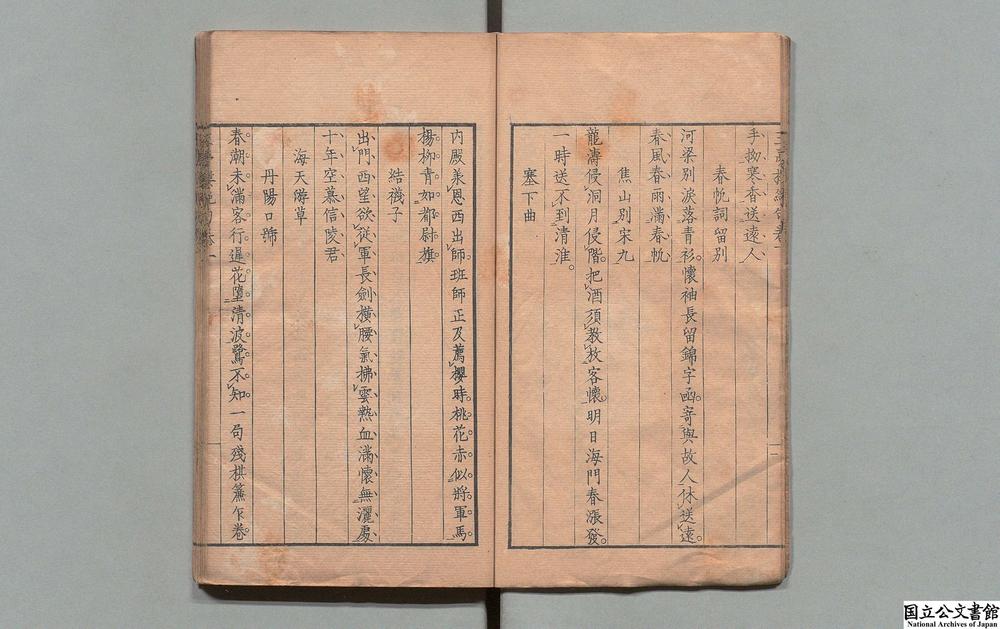 手拗寒香送遠人
春帆詞留別
河梁別淚落青衫懷袖長留錦字函寄與故人休送遠
春風春雨滿春帆
焦山別宋九
龍濤侵洞月侵階把酒須教放客懷明日海門春漲發
一時送不到清淮
塞下曲
内殿兼恩西出師班師正及薦櫻時桃花赤似將軍馬
楊柳青如都尉旗
結襪子
出門西望欲從軍長劍橫腰氣拂雲熱血滿懷無灑處
十年空慕信陵君
海天游草
丹陽口號
春潮未滿客行遲花墮清波鷺不知一局殘棋簾乍卷
国立公文書館
National Archives of Japan